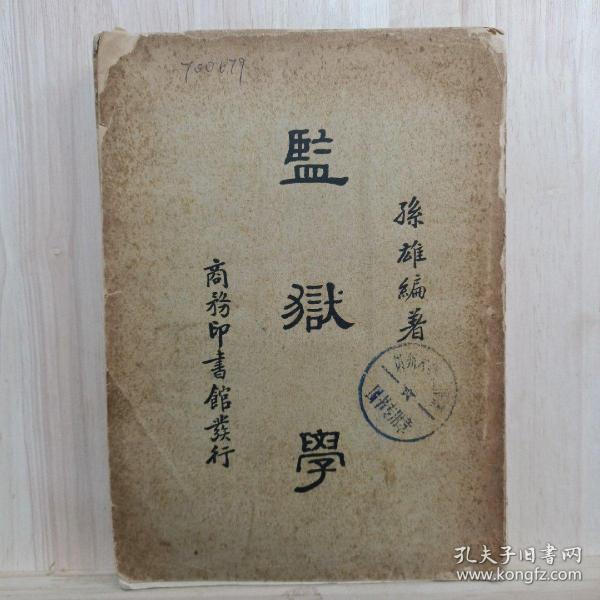 700679
孫雄編著
監獄學
商務印書館發行
孔夫子旧书网
www.kongfz.com